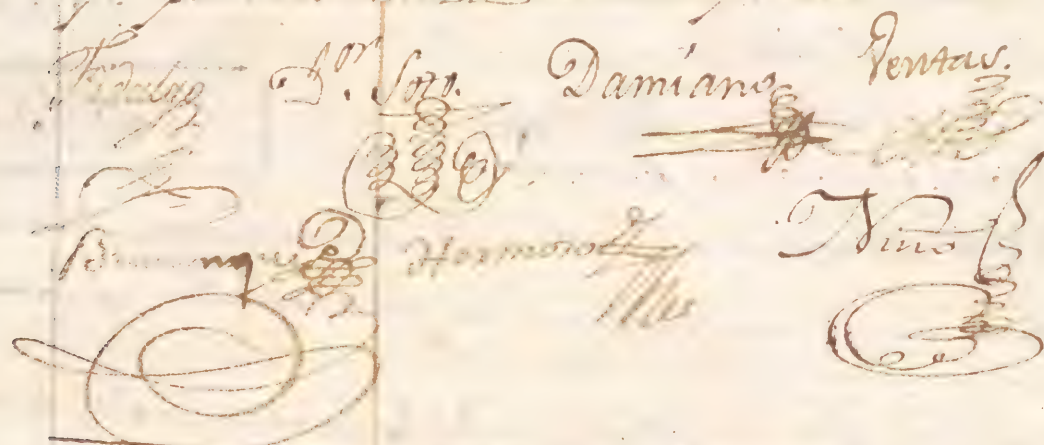 Hidalgo Dor. Soto. Damiano Ventas.
Hermoso Niño